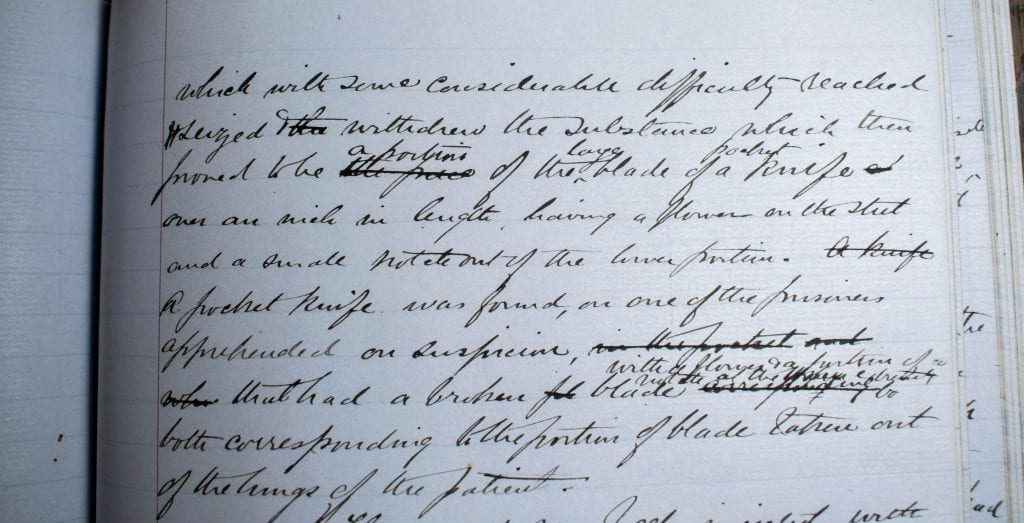 which with some considerable difficulty reached
& seized & the withdrew the substance which then
a portion large pocket
proved to be the piece of the blade of a knife
over an inch in length, having a flower on the steel
and a small notch out of the lower portion. A knife
A pocket knife was found, on one of the prisoners
apprehended on suspicion, in the pocket and
with a flower & a portion of
who that had a broken blade
both corresponding to the portion of blade taken out
of the lungs of the patient.
with